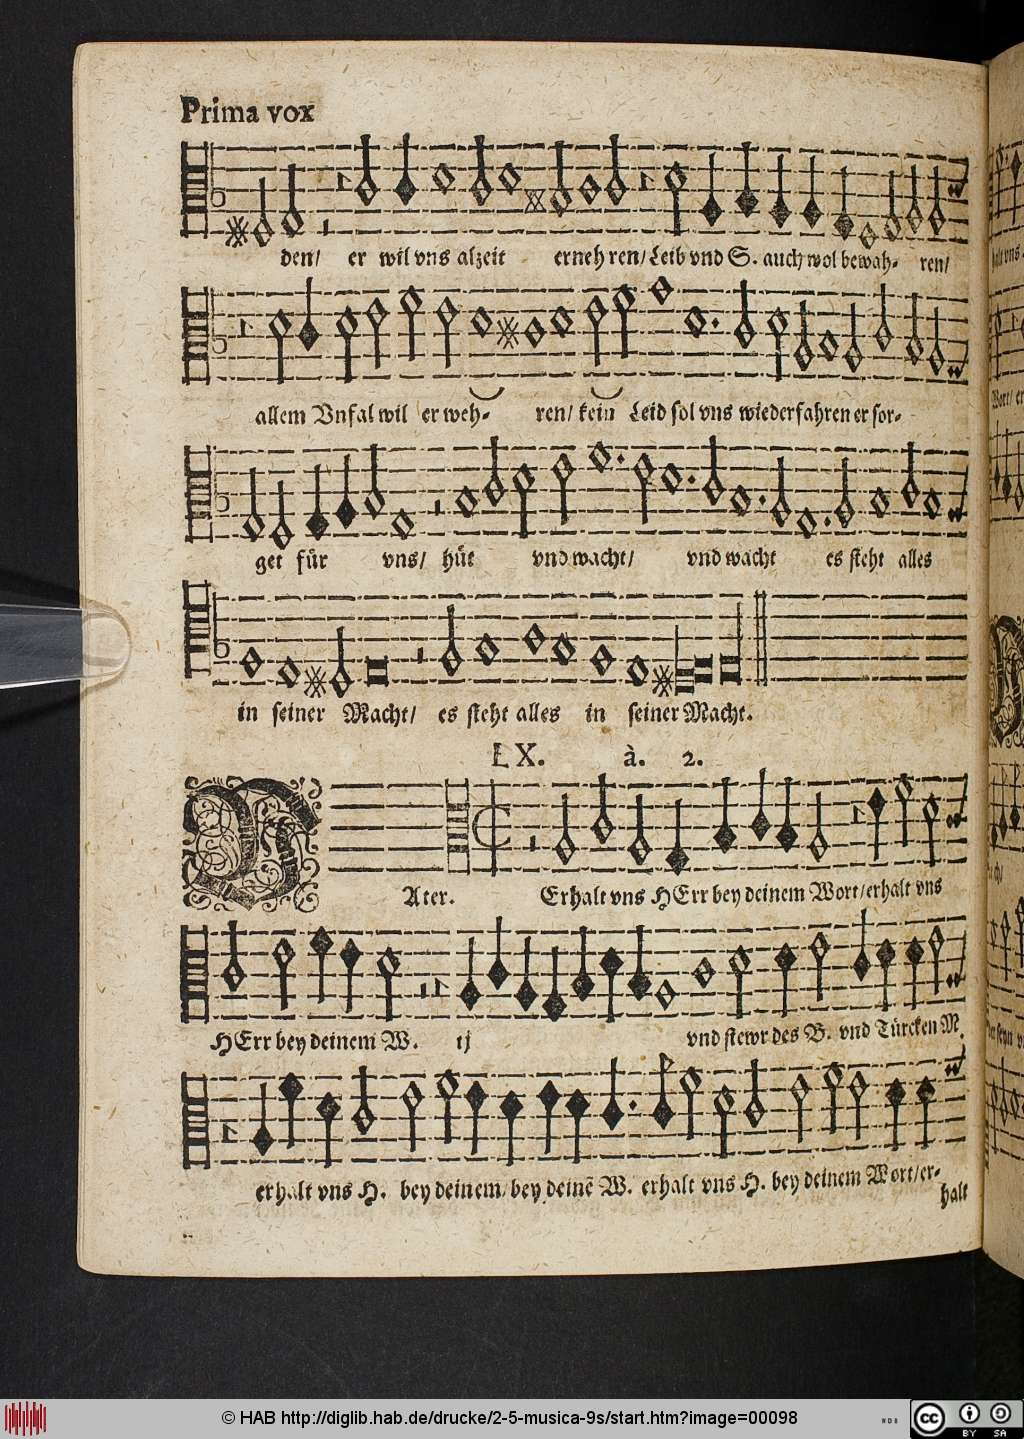 Prima vox
den/ er wil vns alzeit ernehren/ Leib vnd S. auch wol bewah- ren/
allem Vnfal wil er weh- ren/ kein Leid sol vns wiederfahren er sor-
get für vns/ hüt vnd wacht/ vnd wacht es steht alles
in seiner Macht/ es steht alles in seiner Macht.
LX. à. 2.
VAter. Erhalt vns HErr bey deinem Wort/ erhalt vns
HErr bey deinem W. ij vnd stewr des B. vnd Türcken M.
erhalt vns H. bey deinem/ bey deinē W. erhalt vns H. bey deinem Wort/ er-
halt
© HAB http://diglib.hab.de/drucke/2-5-musica-9s/start.htm?image=00098
cc BY SA